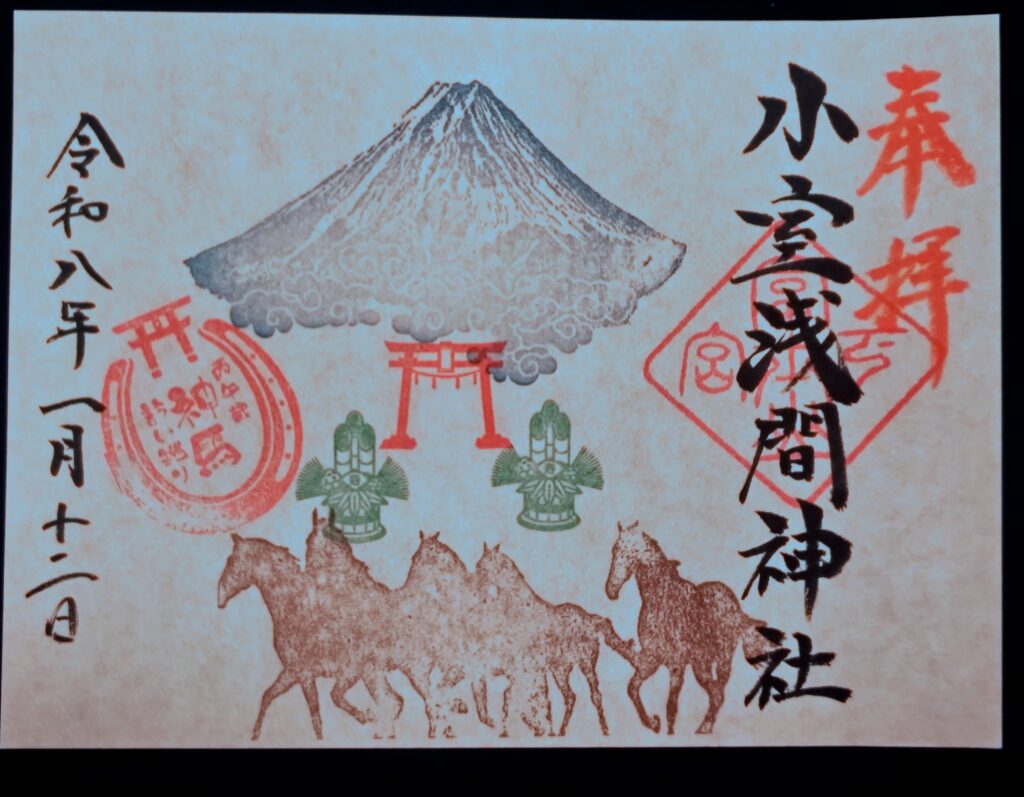 奉拝
小室浅間神社
丙午歳
神馬
令和八年一月十二日